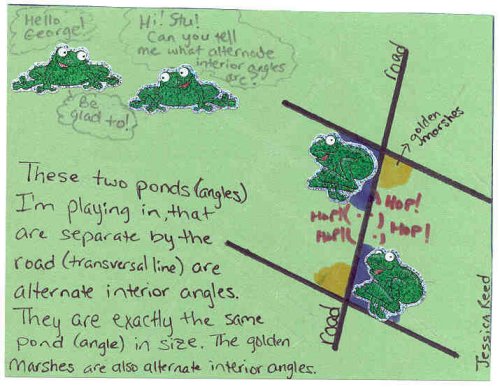 Hello
George!
Hi! Stu!
Can you tell
me what alternate
interior angles
are?
Be
glad to!
road
golden
marshes
Hop!
Hop!(
Hop!
Hop!(
These two ponds (angles)
I'm playing in, that
are separate by the
road (transversal line) are
alternate interior angles.
They are exactly the same
pond (angle) in size. The golden
marshes are also alternate interior angles.
road
Jessica Reed